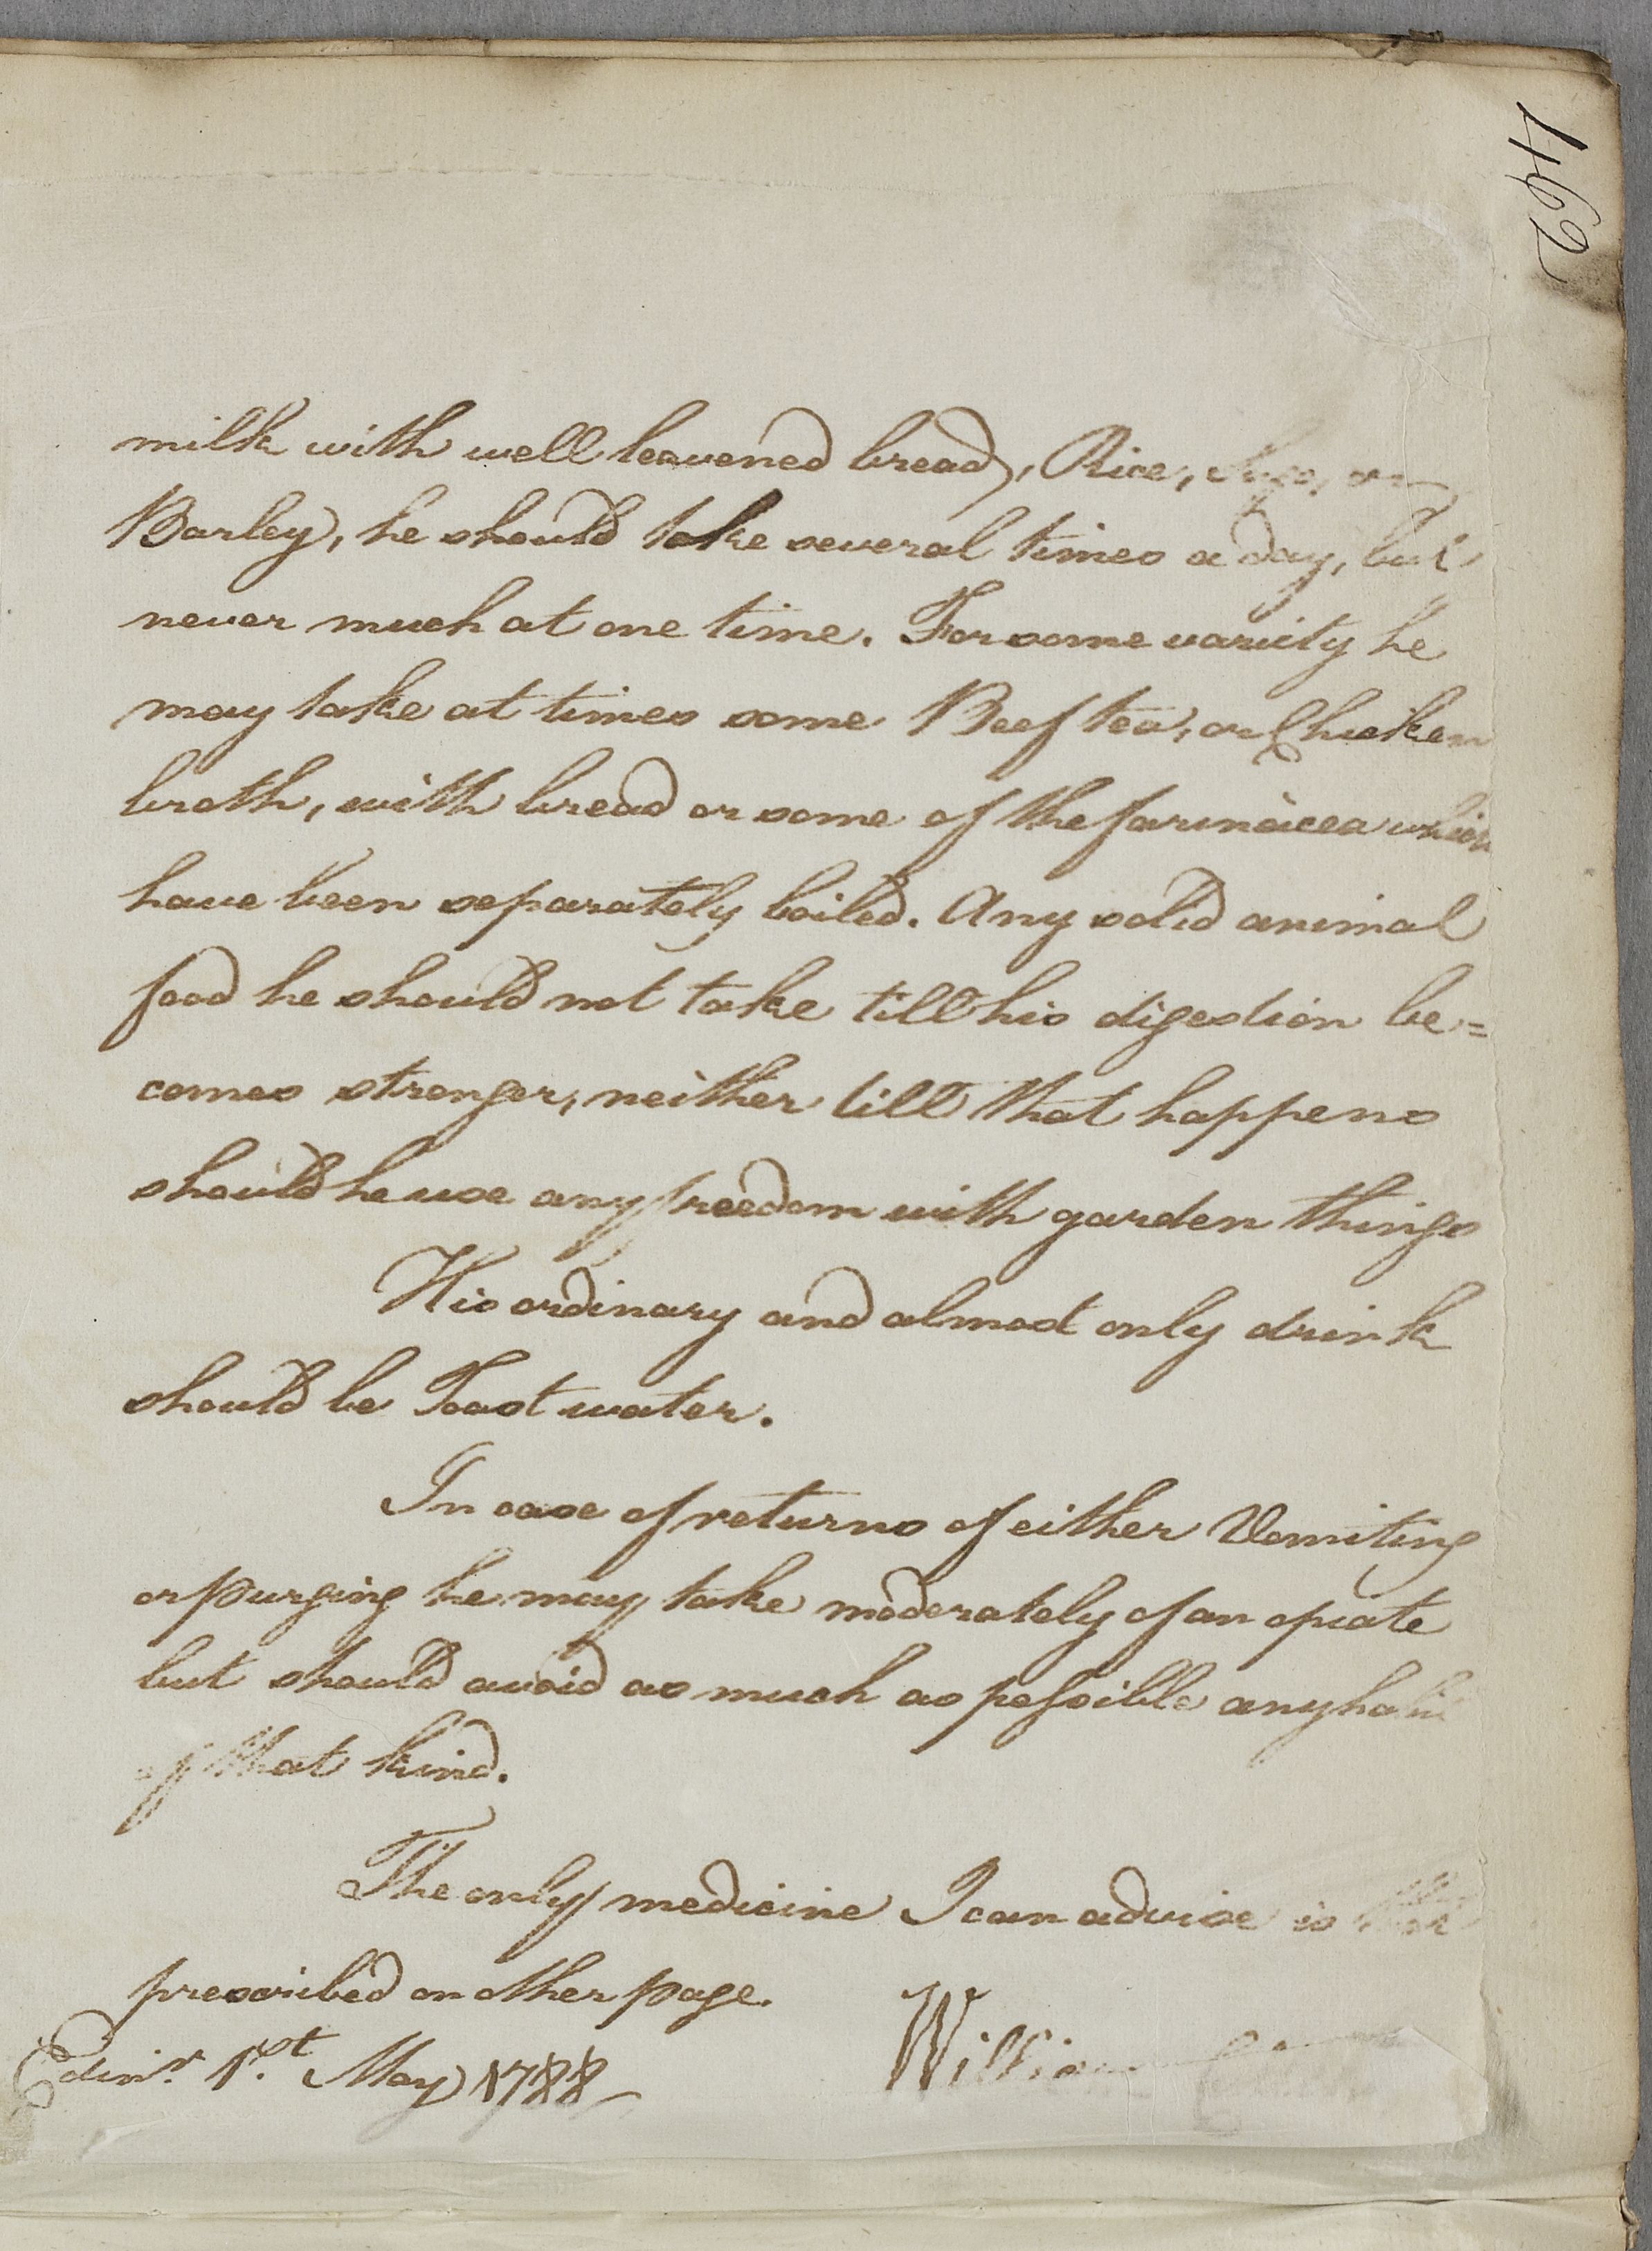 462
milk with well leavened bread, Rice, Sago, or
Barley, he should take several times a day, but
never much at one time. For some variety he
may take at times some Beef tea, or Chicken
broth, with bread or some of the farinácea which
have been separately boiled. Any solid animal
food he should not take till his digestion be=
comes stronger, neither till that happens
should he use any freedom with garden things
His ordinary and almost only drink
should be Toast water.
In case of returns of either Vomiting
or purging he may take moderately of an opiate
but should avoid as much as possible any habit
of that kind.
The only medicine I can advise is that
prescribed on other page.
Edinr. 1st. May 1788
William